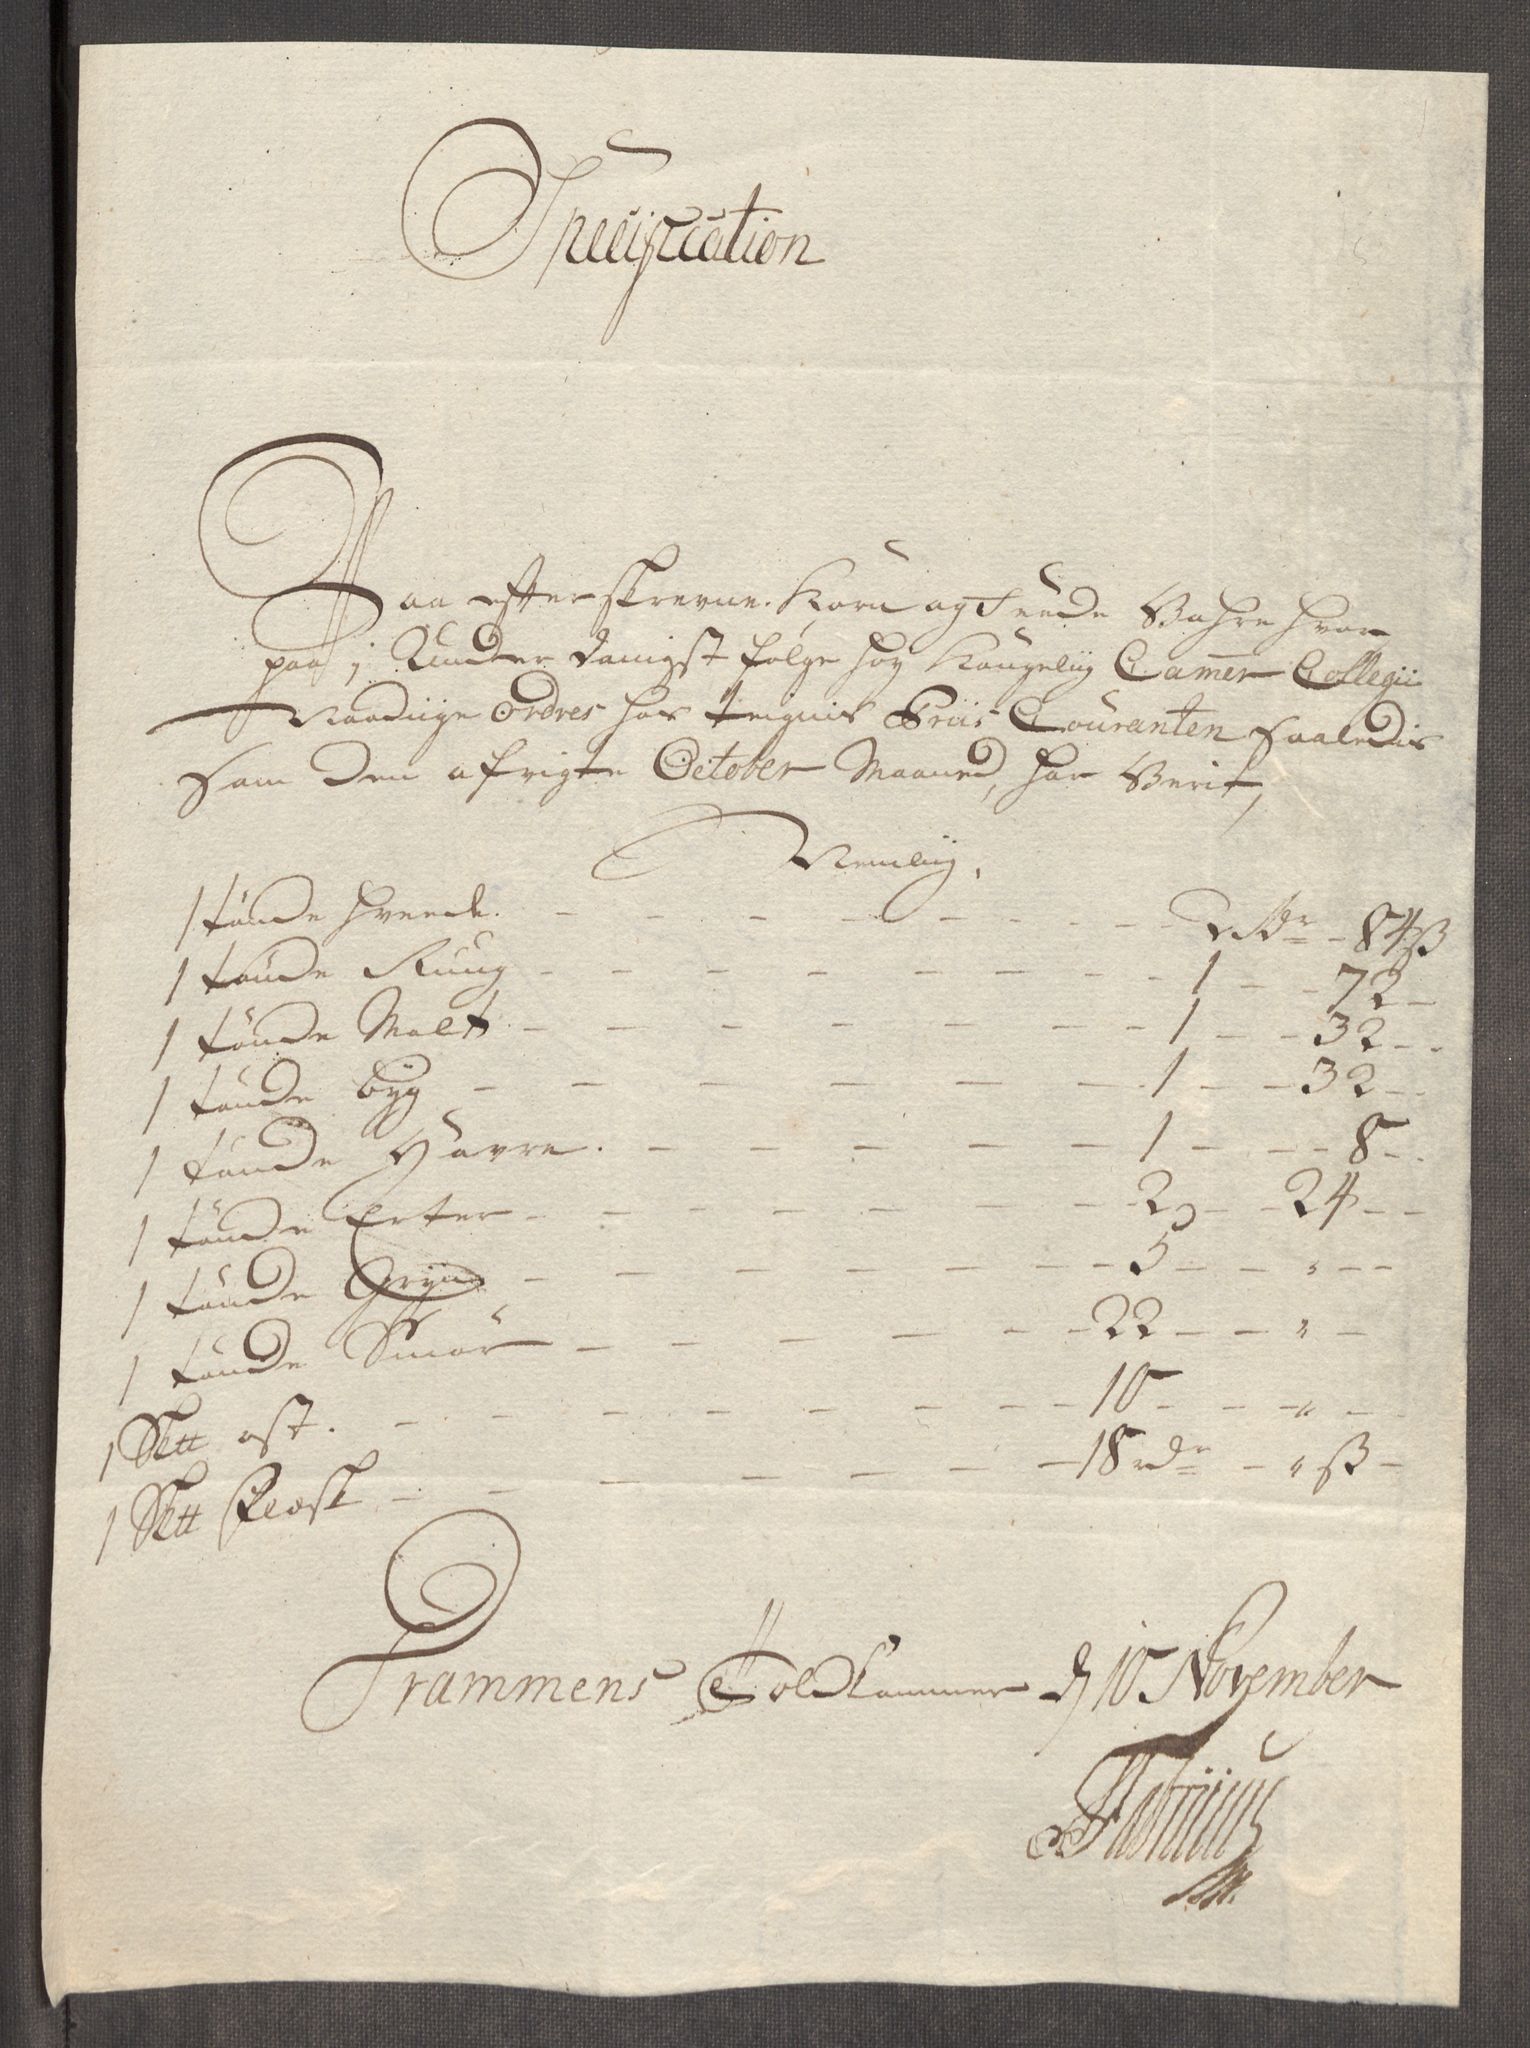 Specification
Paa efterskrevne Korn og feede Vahre hvor
paa i Underdanigst følge høy Kongelig Camer Collegii
Naadige Ordres her teignis Priis Couranten saaledis
som den afvigte October Maaned, har Verit,
Nemlig,
1 tønde hveede. - - - 2 Rdr - 84 ß
1 tønde Rug - - - 1 - - 72 -
1 tønde Malt - - - 1 - - 32 - -
1 tønde byg - - - 1 - - 32 - -
1 tønde Havre. - - - 1 - - - 8 - -
1 tønde Erter - - - 2 - - 24 - -
1 tønde Gryn - - - 5 - - " - -
1 tønde Smør - - - 22 - - " -
1 Skt ost. - - - 10 - - " - -
1 Skt Flesk - - - 18 rdr - " ß -
Drammens Toldkammer d 10 November